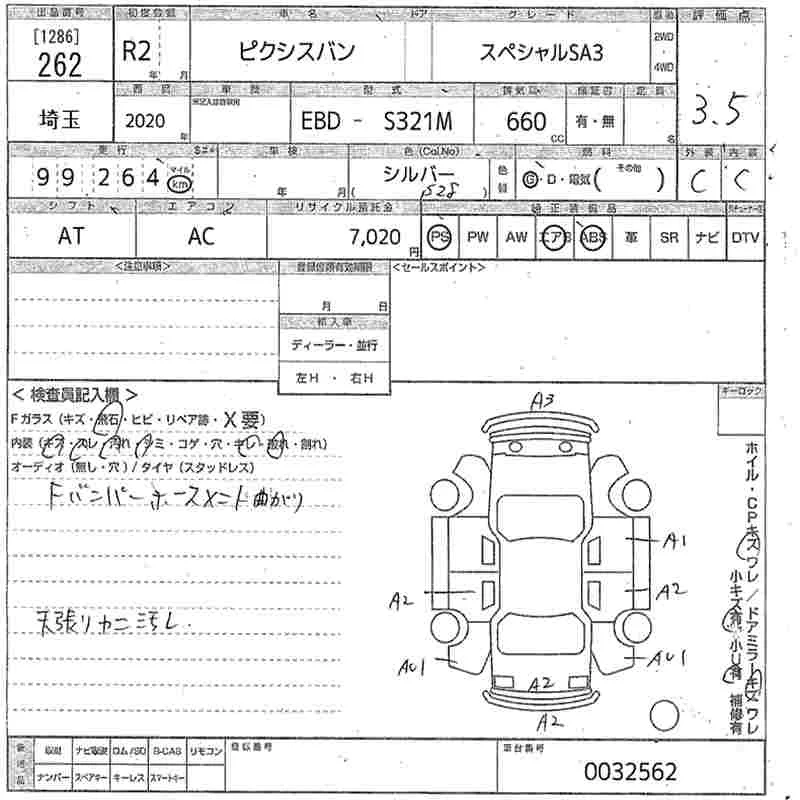 出品番号 初度登録 車名 ドア グレード 駆動 評価点
[1286] 262 R2 年 月 ピクシスバン スペシャルSA3 2WD 4WD 3.5
西暦 車歴 型式 排気量 保証書 定員
埼玉 2020 年 EBD - S321M 660 CC 有・無 名
走行 車検 色(Cal.No) 色替 燃料 その他 外装 内装
99264 マイル km 年 月 シルバー (S28) G・D・電気( ) C C
シフト エアコン リサイクル預託金 純正装備品
AT AC 7,020 円 PS PW AW エアB ABS 革 SR ナビ DTV
<注意事項> 登録書類有効期限 <セールスポイント>
月 日
輸入車
ディーラー・並行
左H ・ 右H
<検査員記入欄> キーロック
Fガラス (キズ・飛石・ヒビ・リペア跡・X要)
内装 (キズ・スレ・汚れ・シミ・コゲ・穴・キレ・割れ)
オーディオ (無し・穴) / タイヤ (スタッドレス)
Fバンパーホースメント曲がり
天張りカニ汚レ
A3
A1
A2 A2
AU1 AU1
A2
A2
ホイル・CPキズワレ/ドアミラーキズワレ
小キズ有 小U有 補修有
後送品 取説 ナビ取説 ロム/SD B-CAS リモコン 登録番号 車台番号
ナンバー スペアキー キーレス スマートキー 0032562